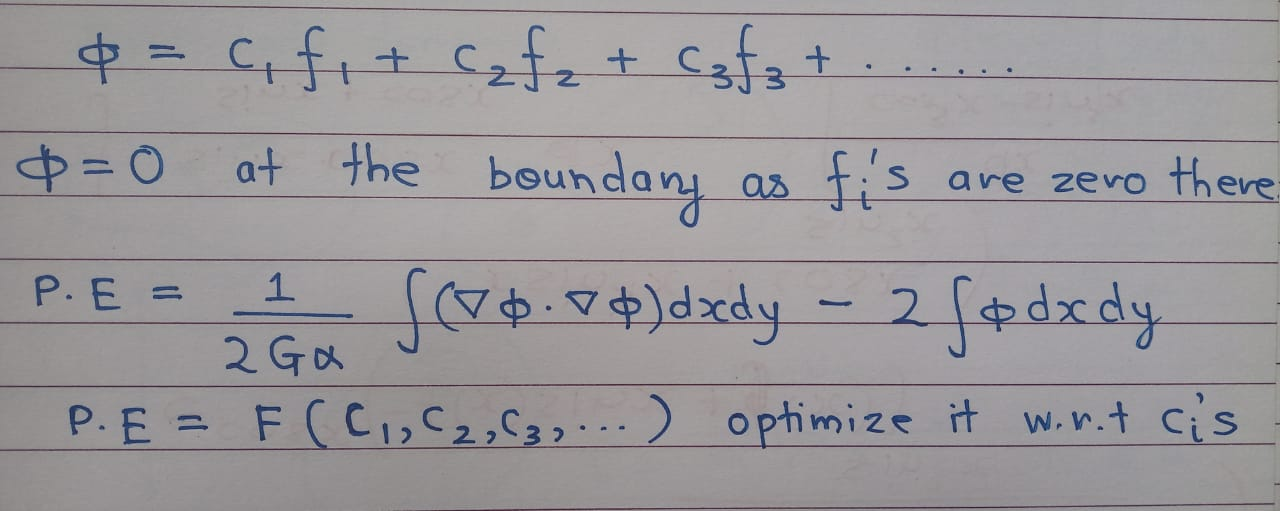 ϕ = c₁f₁ + c₂f₂ + c₃f₃ + .......
ϕ = 0 at the boundary as fᵢ's are zero there.
P.E = 1/(2Gα) ∫(∇ϕ.∇ϕ)dxdy - 2∫ϕdxdy
P.E = F(C₁,C₂,C₃,...) optimize it w.r.t Cᵢ's